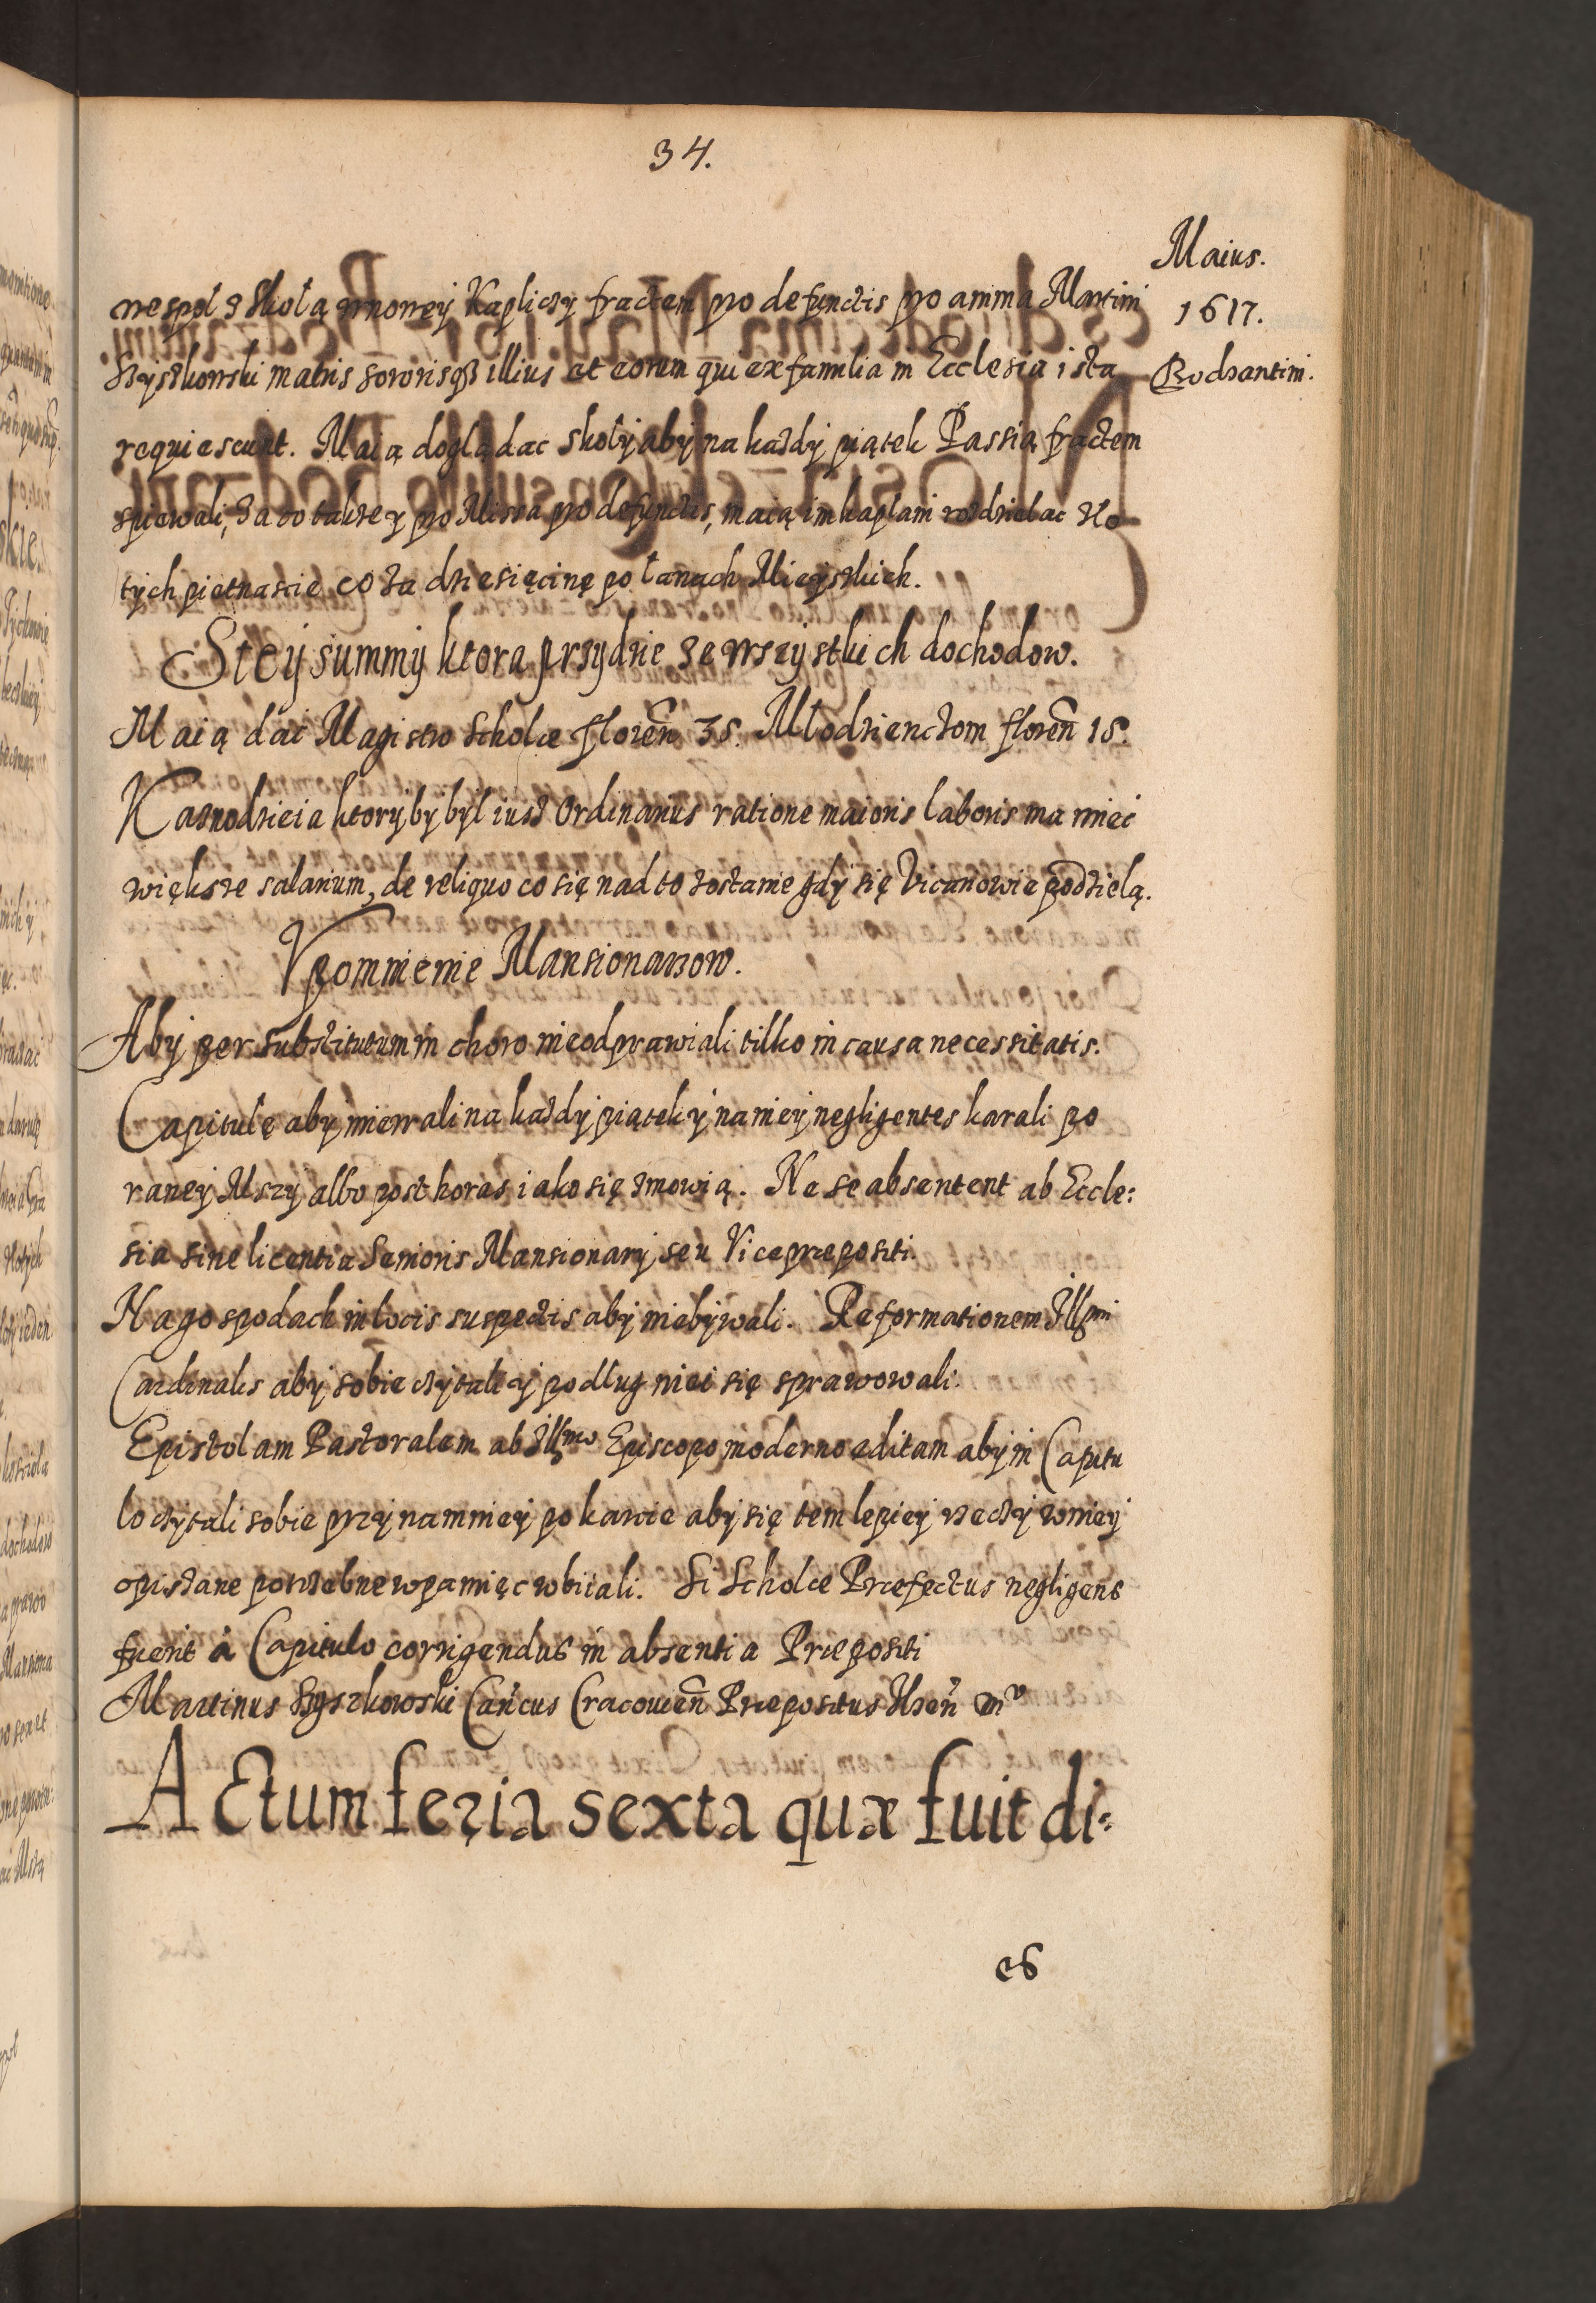 34.
Maius.
1617.
Bodzantini.
wespol z skolą wnowey Kapliczy fractem pro defunctis pro anima Martini
Szyszkowski matris sororisqз illius et eorum qui ex familia in Ecclesia ista
requiescunt. Maią doglądac skoly aby na każdy piątek Passią fractem
spiewali, za to takze y pro Missa pro defunctis, maią im kapłani rozdzielac zło-
tych pietnascie co za dziesięcinę po łanach Mieyskich.
Stey summy ktora przydzie ze wszystkich dochodow.
Maią dać Magistro Scholæ floreñ 35. Młodzienczom floreñ 15.
Kaznodzieia ktoryby był iuż Ordinarius ratione maioris laboris ma mieć
większe salarium, de reliquo co się nadto zostanie gdy się Vicariowie podzielą.
Vpomnienie Mansionarzow.
Aby per substitutum in choro nieodprawiali tilko in causa necessitatis.
Capitułę aby miewali na każdy piątek y na niey negligentes karali po
raney Mszy albo post horas iako się zmowią. Ne se absentent ab Eccle:
sia sine licentia Senioris Mansionarij seu Vicepræpositi.
Na gospodach in locis suspectis aby niebywali. Reformationem Illsmi
Cardinalis aby sobie czytali y podług niei się sprawowali.
Epistolam Pastoralem ab Illsmo Episcopo moderno editam aby in Capitu
lo czytali sobie przynamniey po karcie aby się tem lepiey rzeczy wniey
opisane potrzebne wpamięc wbiiali. Si Scholæ Præfectus negligens
fuerit à Capitulo corrigendus in absentia Præpositi
Martinus Szyszkowski Cañcus Cracovieñ Præpositus Ilzeñ
Actum feria sexta quæ fuit di-
es